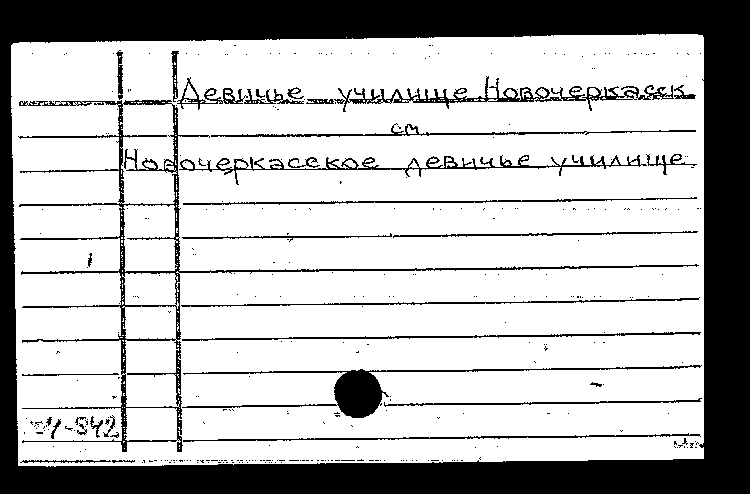 Девичье училище Новочеркасск
см.
Новочеркасское девичье училище